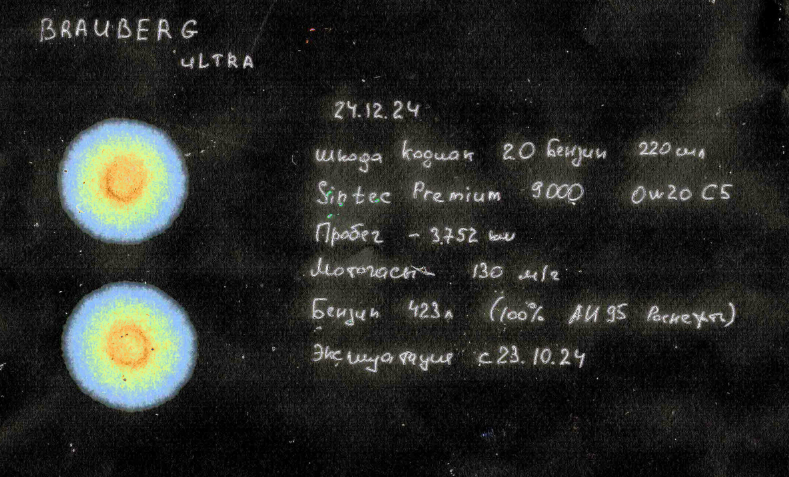 BRAUBERG
ULTRA
24.12.24
Шкода Кодиак 2.0 Бензин 220 сил
Sintec Premium 9000 0w20 C5
Пробег - 3752 км
Моточасы 130 м/ч
Бензин 423л (100% АИ 95 Роснефть)
Эксплуатация с 23.10.24